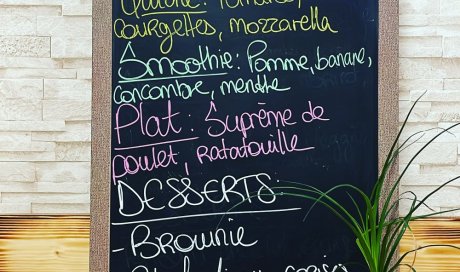 courgettes, mozzarella
Smoothie: Pomme, banane,
concombre, menthe
Plat: Suprême de
poulet, Ratatouille
DESSERTS:
- BROWNIE